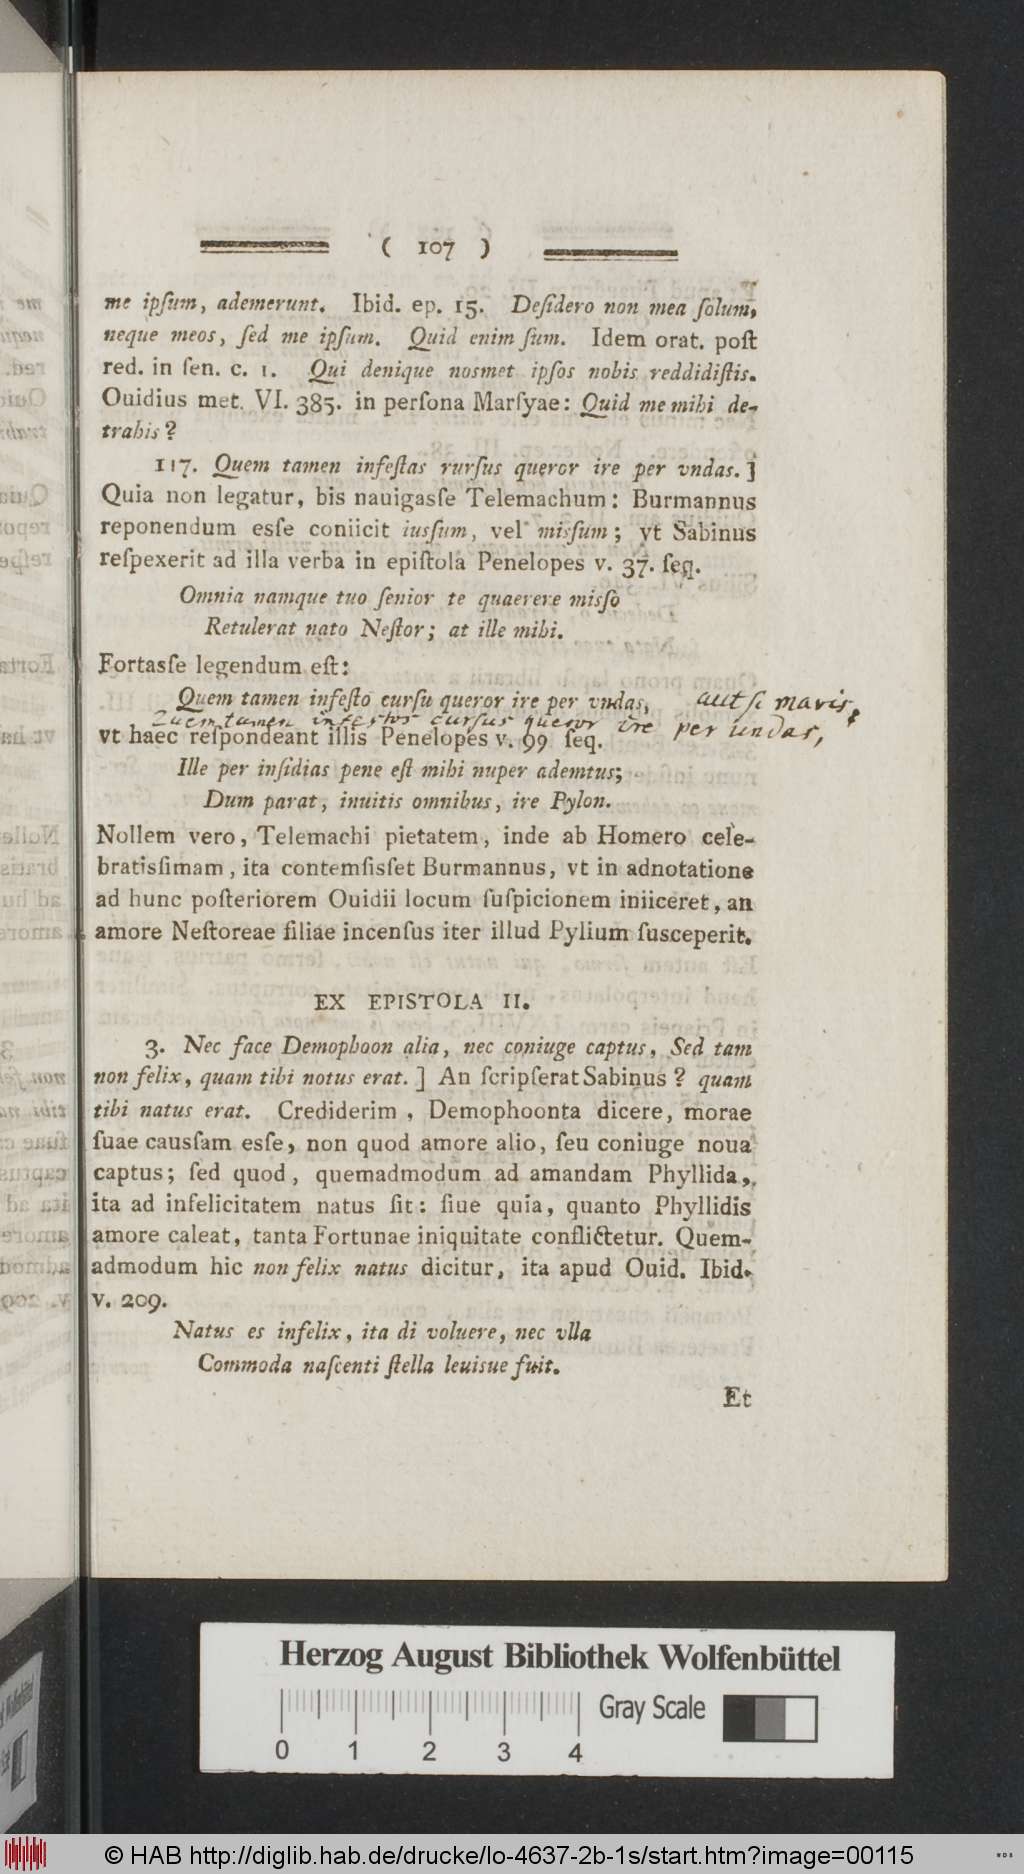 ( 107 )
me ipſum, ademerunt. Ibid. ep. 15. Deſidero non mea ſolum,
neque meos, ſed me ipſum. Quid enim ſum. Idem orat. poſt
red. in ſen. c. 1. Qui denique nosmet ipſos nobis reddidiſtis.
Ouidius met. VI. 385. in perſona Marſyae: Quid me mihi de-
trahis?
117. Quem tamen infeſtas rurſus queror ire per vndas.]
Quia non legatur, bis nauigasſe Telemachum: Burmannus
reponendum esſe coniicit iusſum, vel misſum; vt Sabinus
reſpexerit ad illa verba in epiſtola Penelopes v. 37. ſeq.
Omnia namque tuo ſenior te quaerere misſo
Retulerat nato Neſtor; at ille mihi.
Fortasſe legendum eſt:
Quem tamen infeſto curſu queror ire per vndas, aut ſi maris,
Quem tamen infestos cursus queror ire per undas,
vt haec reſpondeant illis Penelopes v. 99 ſeq.
Ille per inſidias pene eſt mihi nuper ademtus;
Dum parat, inuitis omnibus, ire Pylon.
Nollem vero, Telemachi pietatem, inde ab Homero cele-
bratisſimam, ita contemſisſet Burmannus, vt in adnotatione
ad hunc poſteriorem Ouidii locum ſuſpicionem iniiceret, an
amore Neſtoreae filiae incenſus iter illud Pylium ſusceperit.
EX EPISTOLA II.
3. Nec face Demophoon alia, nec coniuge captus, Sed tam
non felix, quam tibi notus erat. ] An ſcripſerat Sabinus? quam
tibi natus erat. Crediderim, Demophoonta dicere, morae
ſuae causſam esſe, non quod amore alio, ſeu coniuge noua
captus; ſed quod, quemadmodum ad amandam Phyllida,
ita ad infelicitatem natus ſit: ſiue quia, quanto Phyllidis
amore caleat, tanta Fortunae iniquitate conflictetur. Quem-
admodum hic non felix natus dicitur, ita apud Ouid. Ibid.
v. 209.
Natus es infelix, ita di voluere, nec vlla
Commoda naſcenti ſtella leuisue fuit.
Et
Herzog August Bibliothek Wolfenbüttel
Gray Scale
0 1 2 3 4
© HAB http://diglib.hab.de/drucke/lo-4637-2b-1s/start.htm?image=00115